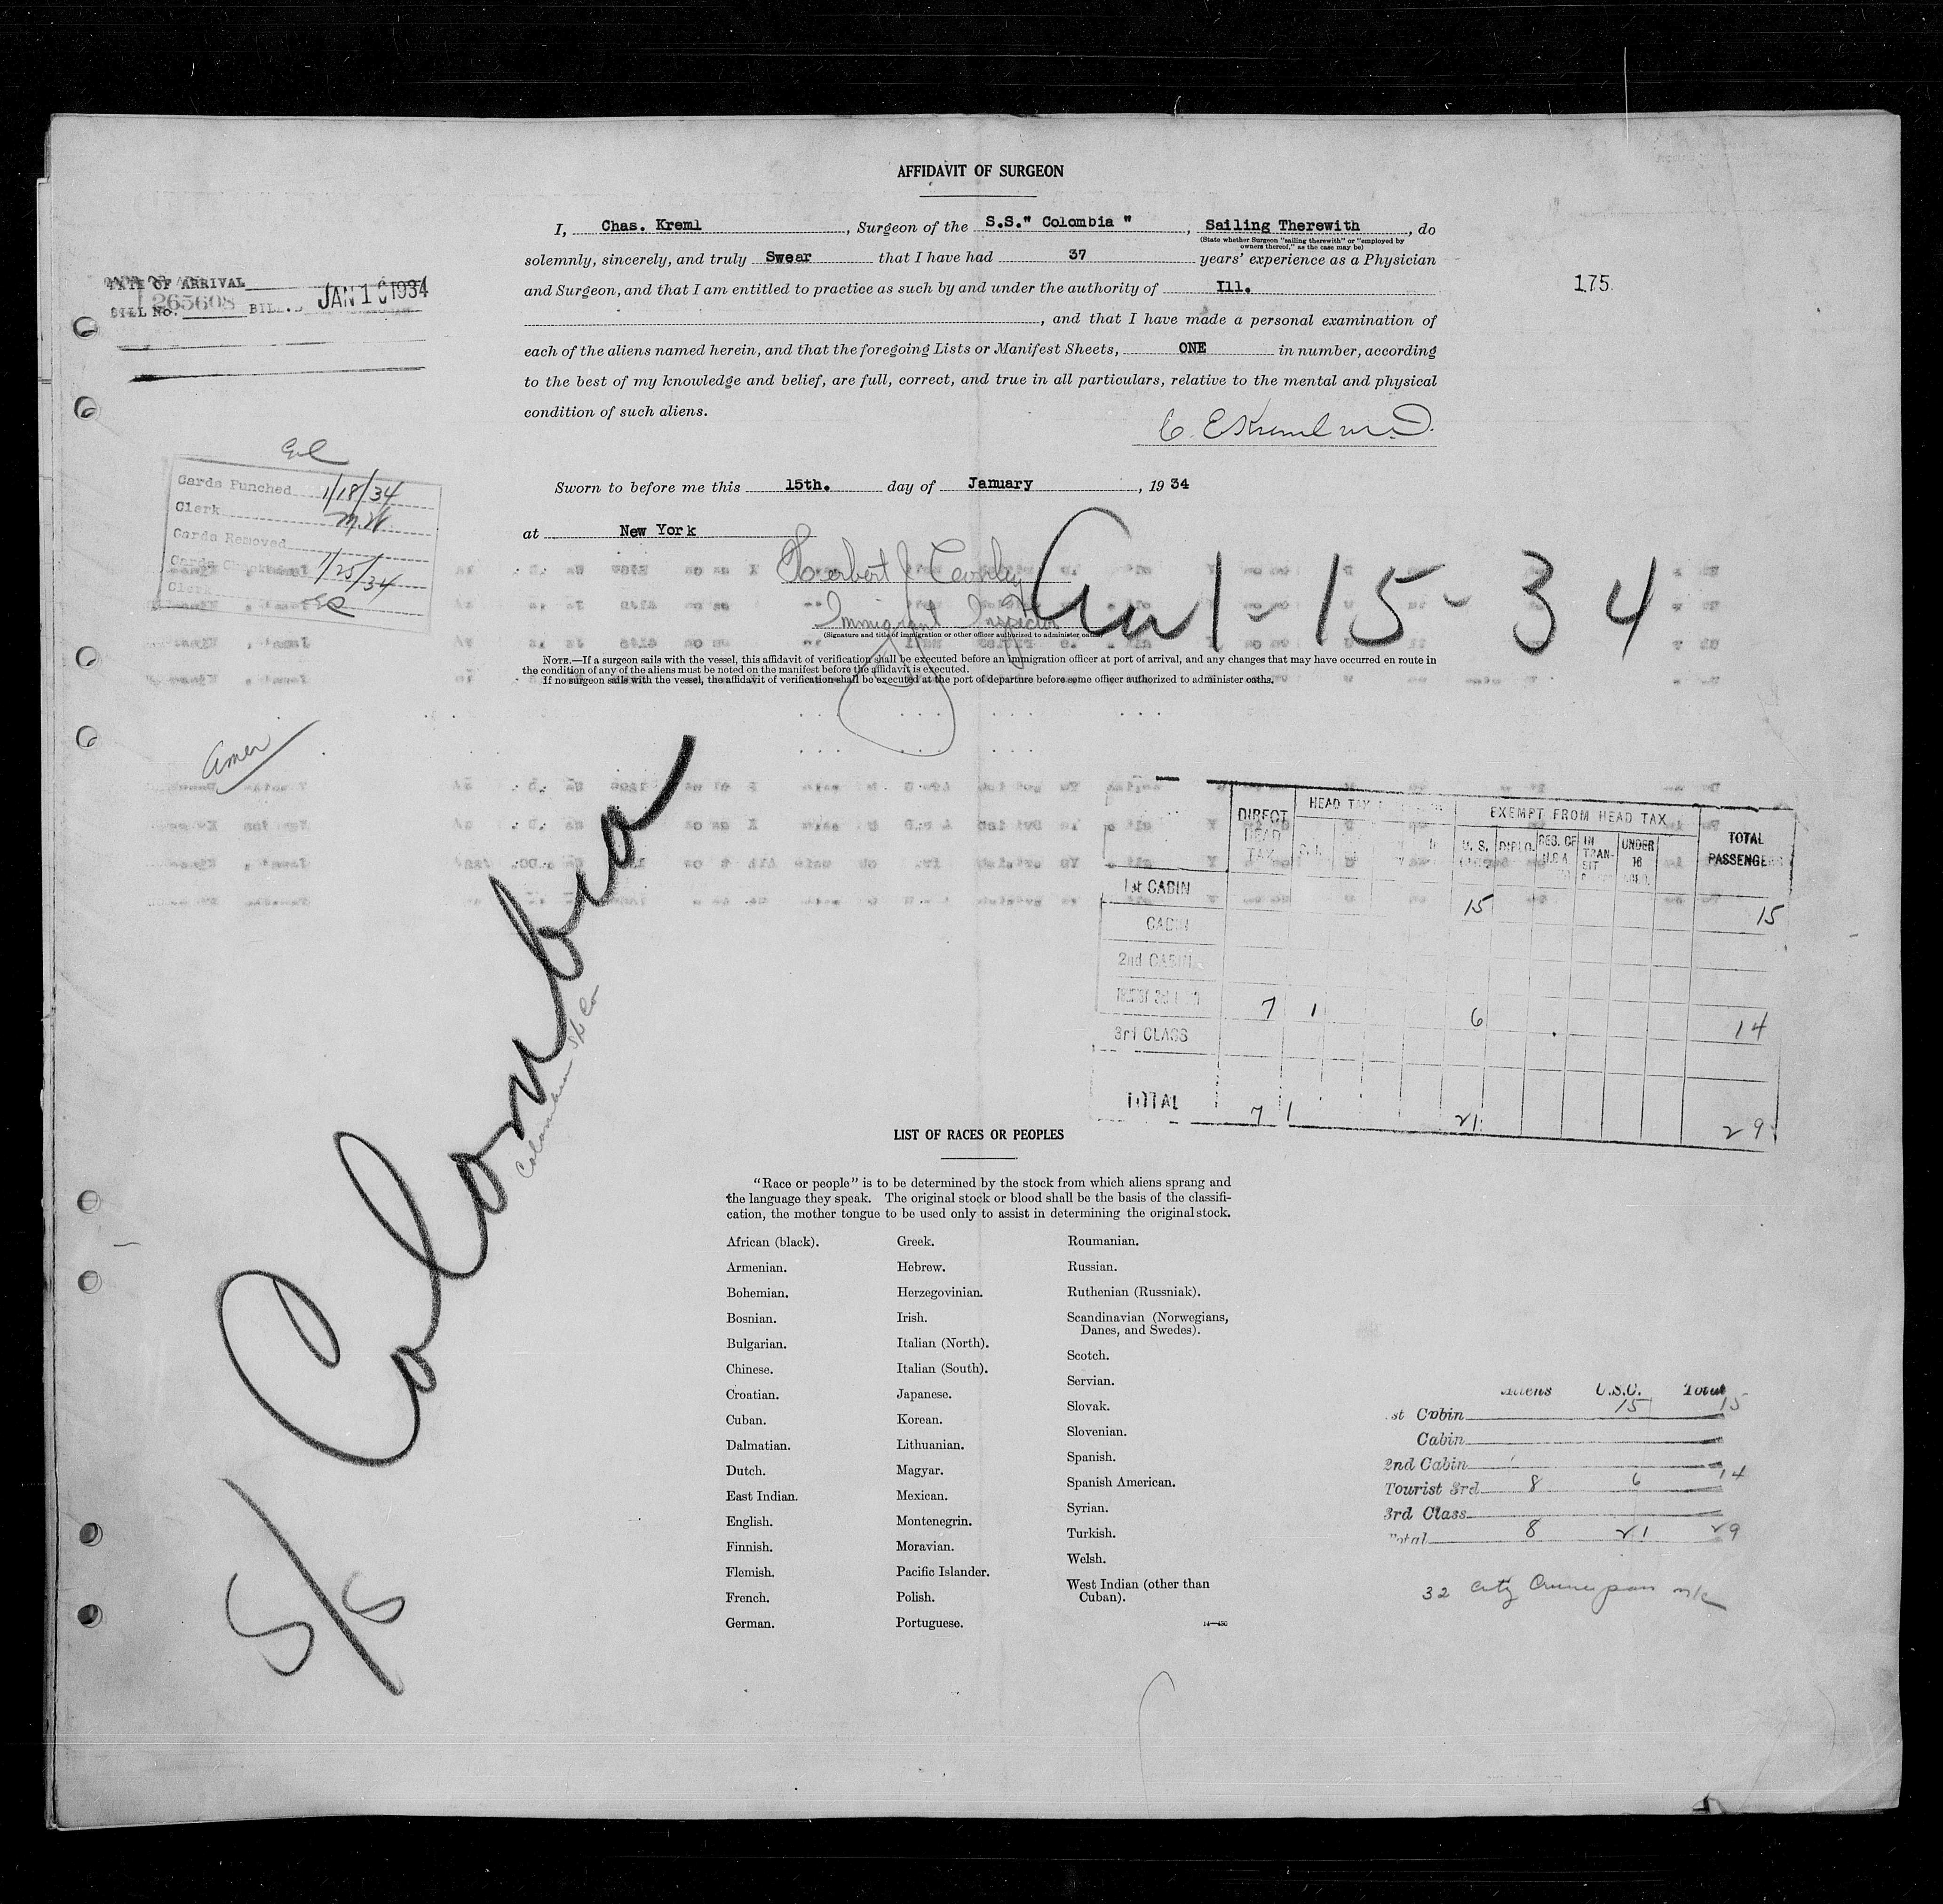 AFFIDAVIT OF SURGEON
I, Chas. Kreml, Surgeon of the S.S." Colombia ", Sailing Therewith, do
(State whether Surgeon "sailing therewith" or "employed by
owners thereof," as the case may be)
solemnly, sincerely, and truly Swear that I have had 37 years' experience as a Physician
and Surgeon, and that I am entitled to practice as such by and under the authority of Ill.
, and that I have made a personal examination of
each of the aliens named herein, and that the foregoing Lists or Manifest Sheets, ONE in number, according
to the best of my knowledge and belief, are full, correct, and true in all particulars, relative to the mental and physical
condition of such aliens.
C. E Kreml M.D.
Sworn to before me this 15th. day of January, 19 34
at New York
Herbert J
Immigrant Inspector
(Signature and title of immigration or other officer authorized to administer oaths)
NOTE.—If a surgeon sails with the vessel, this affidavit of verification shall be executed before an immigration officer at port of arrival, and any changes that may have occurred en route in
the condition of any of the aliens must be noted on the manifest before the affidavit is executed.
If no surgeon sails with the vessel, the affidavit of verification shall be executed at the port of departure before some officer authorized to administer oaths.
175
DATE OF ARRIVAL
265608
BILL No. JAN 1 1934
Cards Punched 1/18/34
Clerk
Cards Removed
1/25/34
Clerk
Arr 1-15-34
Amer
S/S Colombia
Colombian SS Co
DIRECT HEAD TAX
HEAD TAX
EXEMPT FROM HEAD TAX
TOTAL PASSENGERS
U. S. DIPLO. RES. OF U.S.A IN TRAN-SIT UNDER 16
1st CABIN 15 15
CABIN
2nd CABIN
TOURIST 3rd 7 1 6 14
3rd CLASS
TOTAL 7 1 21 29
LIST OF RACES OR PEOPLES
"Race or people" is to be determined by the stock from which aliens sprang and
the language they speak. The original stock or blood shall be the basis of the classifi-
cation, the mother tongue to be used only to assist in determining the original stock.
African (black).
Armenian.
Bohemian.
Bosnian.
Bulgarian.
Chinese.
Croatian.
Cuban.
Dalmatian.
Dutch.
East Indian.
English.
Finnish.
Flemish.
French.
German.
Greek.
Hebrew.
Herzegovinian.
Irish.
Italian (North).
Italian (South).
Japanese.
Korean.
Lithuanian.
Magyar.
Mexican.
Montenegrin.
Moravian.
Pacific Islander.
Polish.
Portuguese.
Roumanian.
Russian.
Ruthenian (Russniak).
Scandinavian (Norwegians,
Danes, and Swedes).
Scotch.
Servian.
Slovak.
Slovenian.
Spanish.
Spanish American.
Syrian.
Turkish.
Welsh.
West Indian (other than
Cuban).
Aliens U.S.C. Total
st Cabin 15 15
Cabin
2nd Cabin
Tourist 3rd 8 6 14
3rd Class
Total 8 21 29
32 City